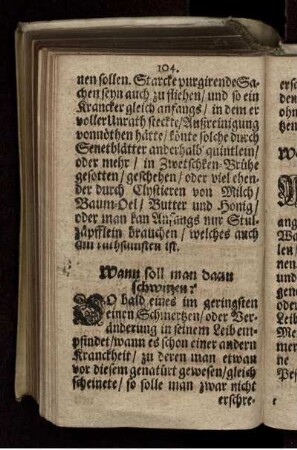 104.
nen sollen. Starcke purgirende Sa-
chen seyn auch zu fliehen/ und so ein
Krancker gleich anfangs/ in dem er
voller Unrath steckte/ Außreinigung
vonnöthen hätte/ könte solche durch
Senetblätter anderhalb quintlein/
oder mehr/ in Zwetschken-Brühe
gesotten/ geschehen/ oder viel ehen-
der durch Clystieren von Milch/
Baum-Oel/ Butter und Honig/
oder man kan Anfangs nur Stul-
zäpflein brauchen/ welches auch
am rathsamsten ist.
Wann soll man dann
schwitzen?
SO bald eines im geringsten
einen Schmertzen/ oder Ver-
änderung in seinem Leib em-
pfindet/ wann es schon einer andern
Kranckheit/ zu deren man etwan
vor diesem genatürt gewesen/ gleich
scheinete/ so solle man zwar nicht
erschre-